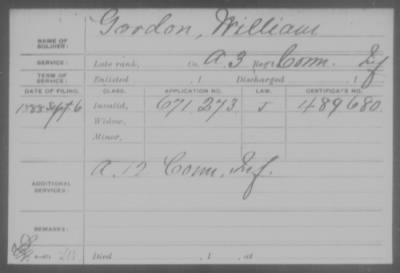 Gordon, William
NAME OF SOLDIER:
SERVICE: Late rank, Co. A. 3 Reg't Conn. Inf
TERM OF SERVICE: Enlisted , 1 Discharged , 1
DATE OF FILING. CLASS. APPLICATION NO. LAW. CERTIFICATE NO.
1888 Sept 6 Invalid, 671.273 J 489680
Widow,
Minor,
A. 12 Conn. Inf.
ADDITIONAL SERVICES:
REMARKS:
Died , 1 , at